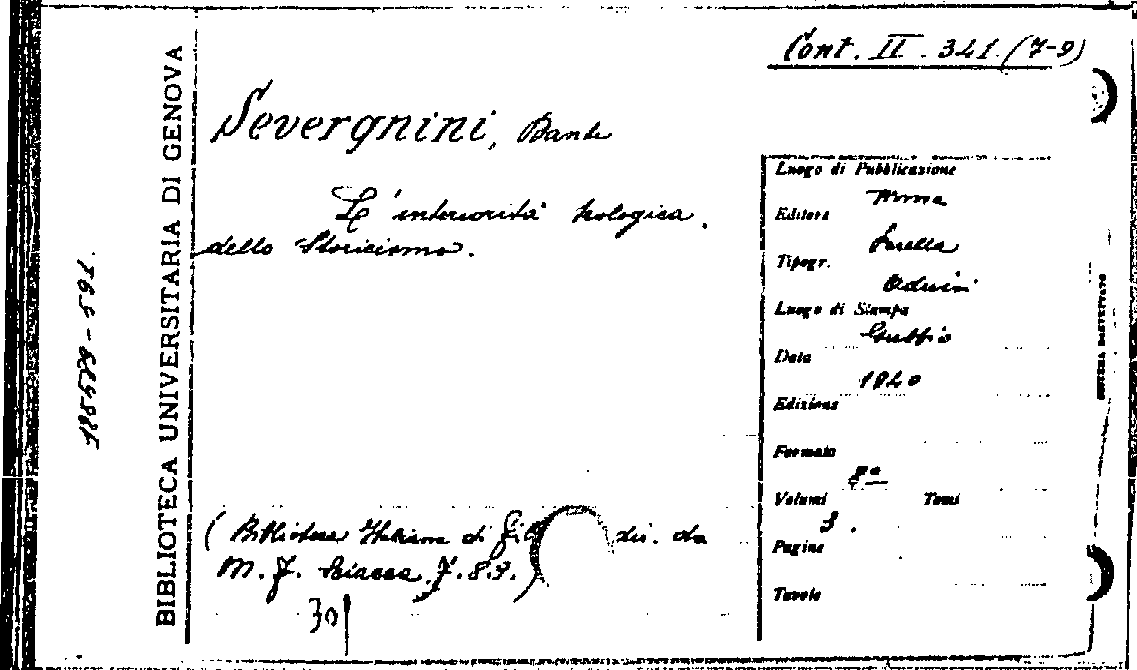 Cont. II. 341. (7-9)
Severgnini, Dante
L'interiorità teologica
dello Storicismo.
Luogo di Pubblicazione
Roma
Editore
Perella
Tipogr.
Oderisi
Luogo di Stampa
Gubbio
Data
1940
Edizione
Formato
8°
Volumi Tomi
3.
Pagine
Tavole
(Biblioteca Italiana di Fil dir. da
M. F. Sciacca, 7. 8. 9.)
30
BIBLIOTECA UNIVERSITARIA DI GENOVA